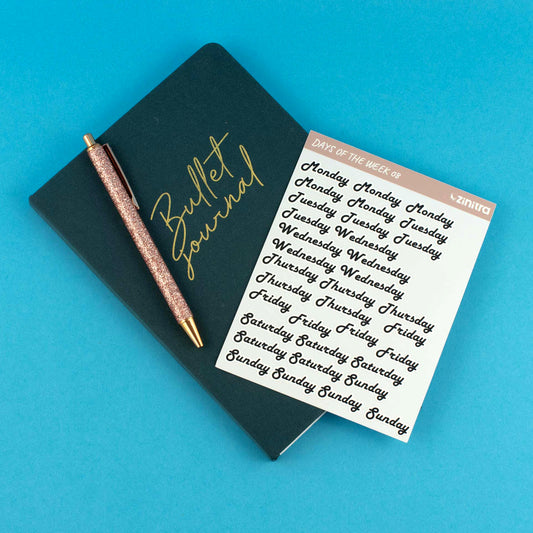 Bullet
Journal
DAYS OF THE WEEK 08
zinitra
Monday Monday Monday
Monday Monday Tuesday
Tuesday Tuesday Tuesday
Tuesday Wednesday
Wednesday Wednesday
Wednesday Wednesday
Thursday Thursday
Thursday Thursday Thursday
Friday Friday Friday Friday
Friday
Saturday Saturday Saturday
Saturday Saturday Sunday
Sunday Sunday Sunday Sunday